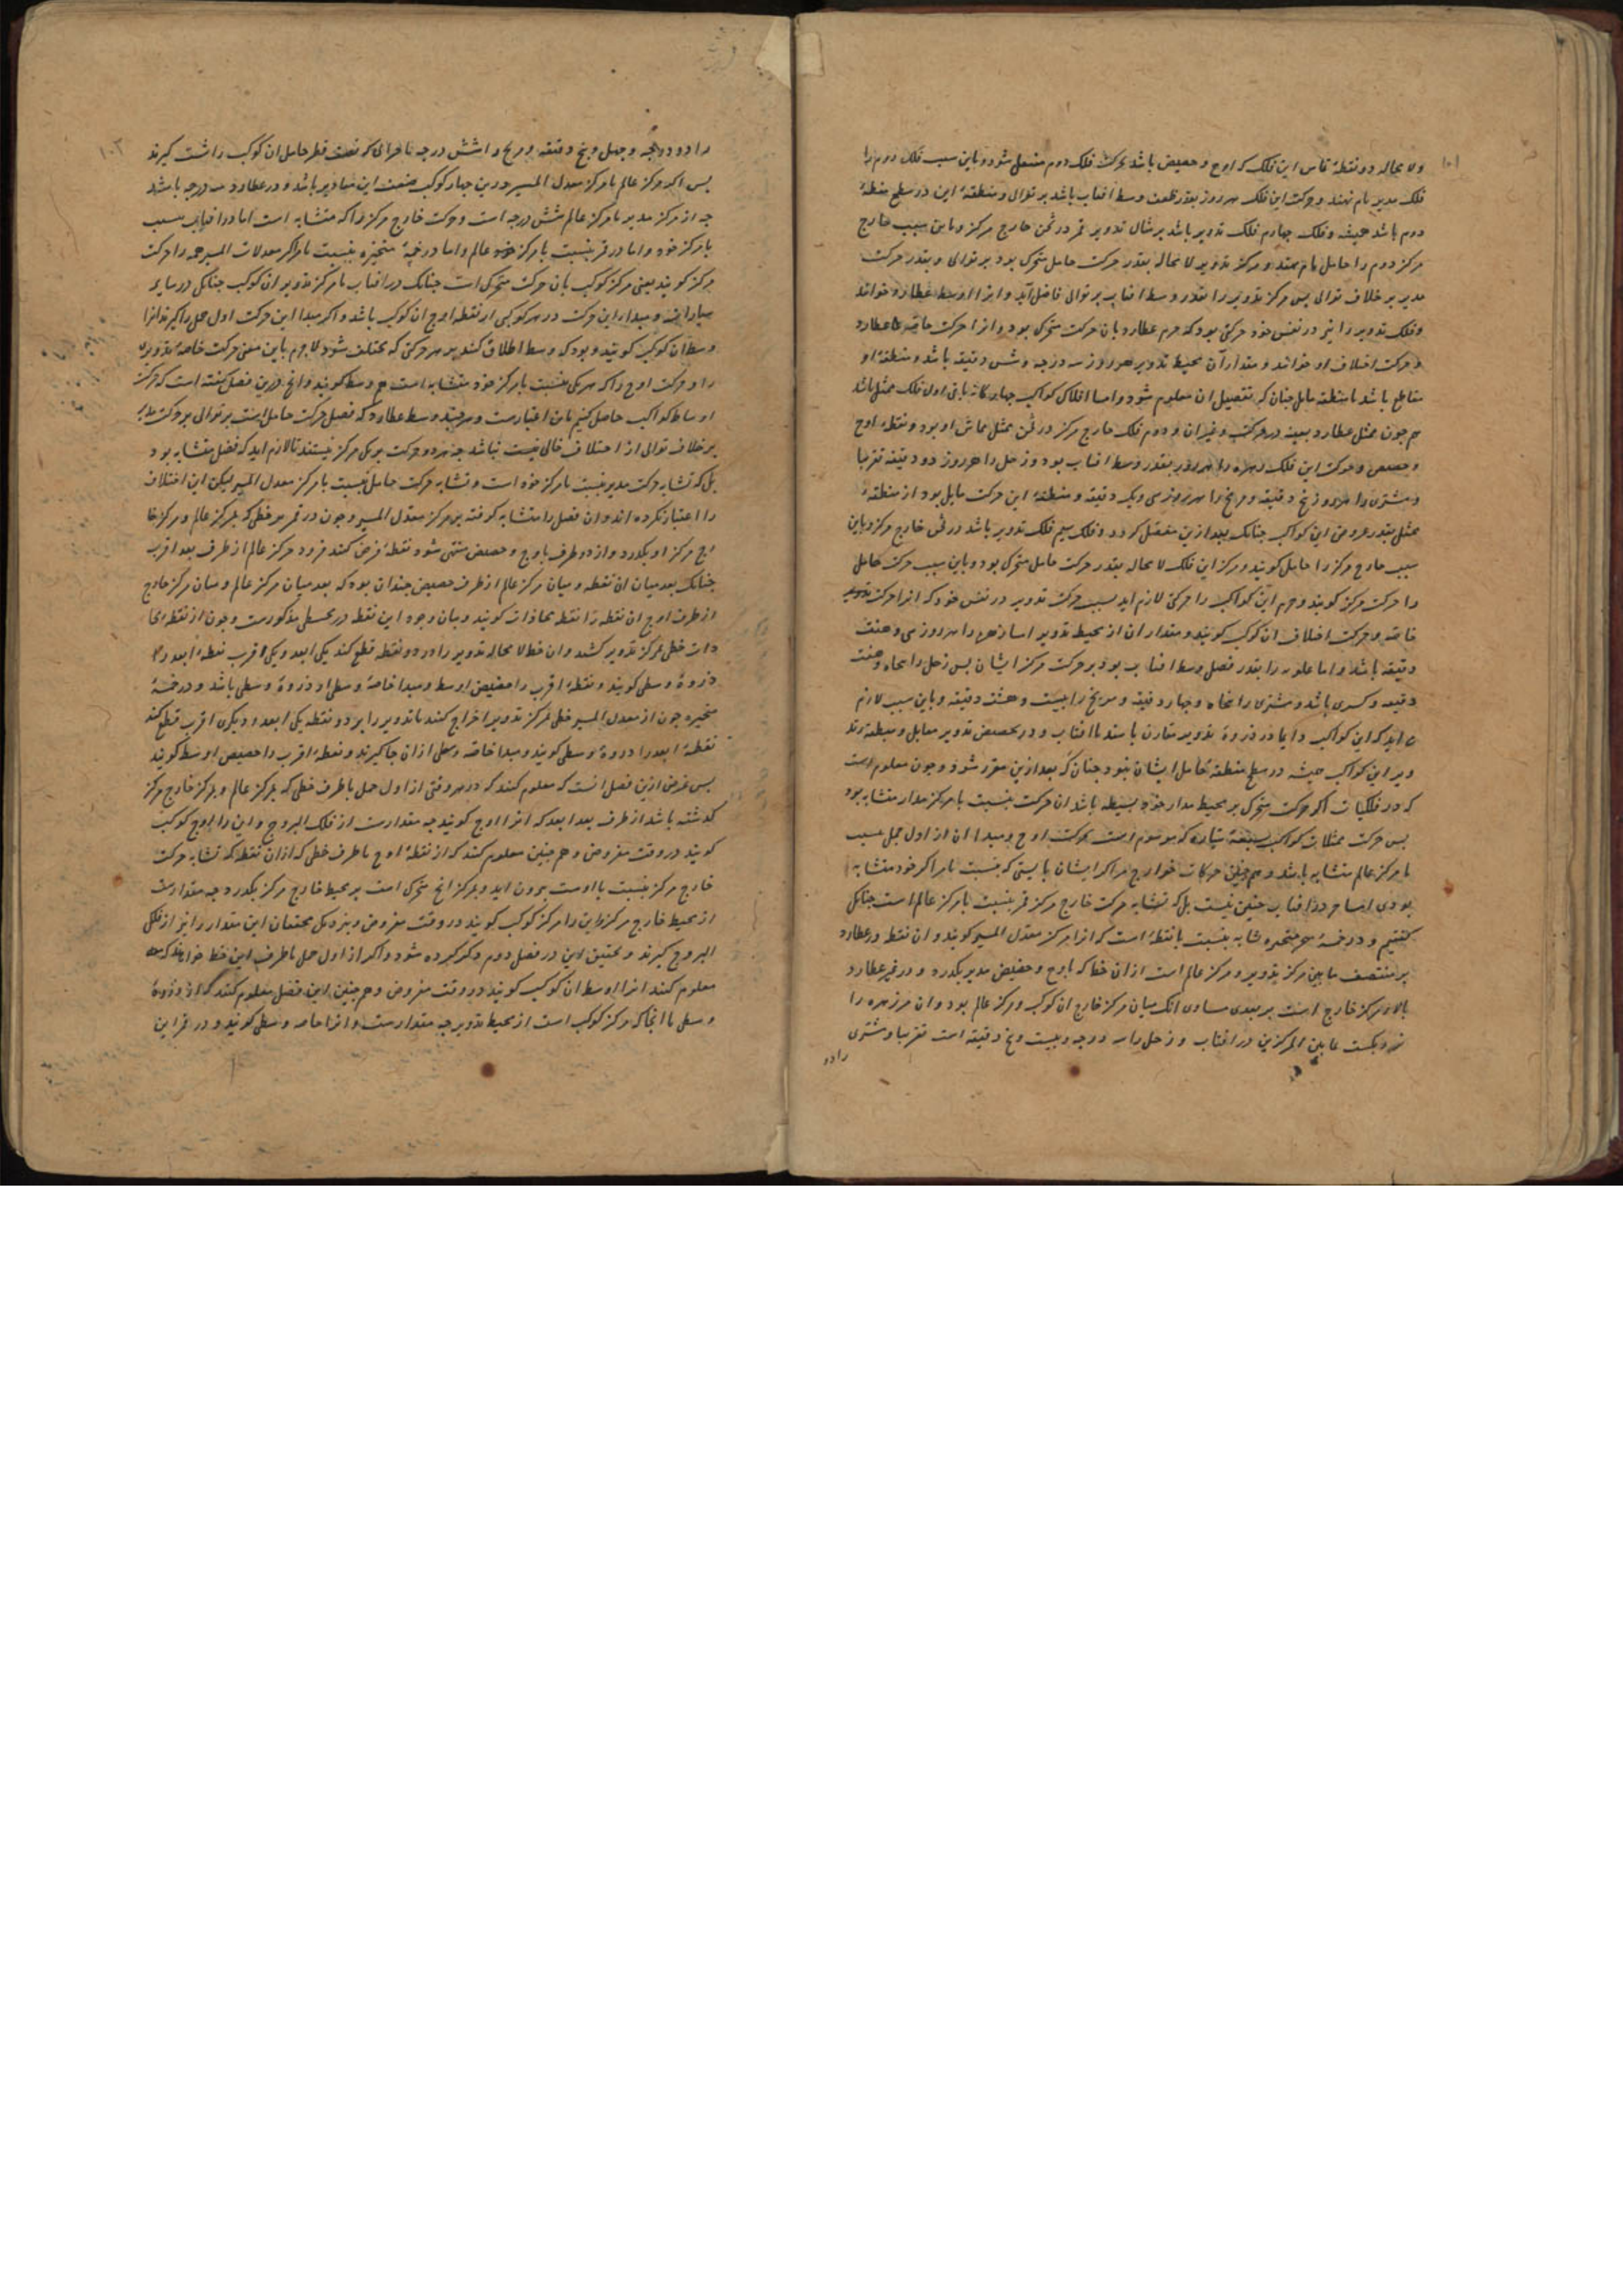 ۱۰۱
ولا محاله دو نقطهٔ تماس این فلک که اوج و حضیض باشد بحرکت فلک دوم منتقل شود و باین سبب فلک دوم را
فلک مدیر نام نهند و حرکت این فلک هر روز بقدر وسط افتاب باشد بر توالی و منطقهٔ این در سطح منطقهٔ
دوم باشد همیشه و فلک چهارم فلک تدویر باشد بر مثال تدویر قمر در ثخن خارج مرکز و باین سبب خارج
مرکز دوم را حامل نام نهند و مرکز تدویر لا محاله بقدر حرکت حامل متحرک بود بر توالی و بقدر حرکت
مدیر بر خلاف توالی پس مرکز تدویر را بقدر وسط افتاب بر توالی فاضل آید و انرا وسط عطارد خوانند
و فلک تدویر را نیز در نفس خود حرکتی بود که جرم عطارد بان حرکت متحرک بود و انرا حرکت خاصه عطارد
و حرکت اختلاف او خوانند و مقدار آن محیط تدویر هر روز سه درجه و شش دقیقه باشد و منطقهٔ او
مقاطع باشد با منطقه مایل چنان که تفصیل ان معلوم شود و اما افلاک کواکب چهارکانه باقی اول فلک ممثل باشد
هم چون ممثل عطارد بعینه در حرکت و غیر ان و دوم فلک خارج مرکز در ثخن ممثل مماس او بود و نقطهٔ اوج
و حضیض و حرکت این فلک زهره را هر روز بقدر وسط افتاب بود و زحل را هر روز دو دقیقه تقریبا
و مشتری را هر روز پنج دقیقه و مریخ را هر روز سی و یک دقیقه و منطقهٔ این حرکت مایل بود از منطقهٔ
ممثل بقدر عروض این کواکب چنانک بعد ازین مفصل کردد و فلک سیم فلک تدویر باشد در ثخن خارج مرکز و باین
سبب خارج مرکز را حامل کویند و مرکز این فلک لا محاله بقدر حرکت حامل متحرک بود و باین سبب حرکت حامل
را حرکت مرکز کویند و جرم این کواکب را حرکتی لازم اید بسبب حرکت تدویر در نفس خود که انرا حرکت تدویر
خاصه و حرکت اختلاف ان کوکب کویند و مقدار ان از محیط تدویر اما زهره را هر روز سی و هفت
دقیقه باشد و اما علویه را بقدر فضل وسط افتاب بود بر حرکت مرکز ایشان پس زحل را پنجاه و هفت
دقیقه و کسری باشد و مشتری را پنجاه و چهار دقیقه و مریخ را بیست و هشت دقیقه و باین سبب لازم
اید که این کواکب دایما در ذروهٔ تدویر مقارن باشند با افتاب و در حضیض تدویر مقابل و منطقهٔ تد
ویر این کواکب همیشه در سطح منطقهٔ حامل ایشان نبود چنان که بعد ازین مقرر شود و چون معلوم است
که در فلکیات اکر حرکت متحرک بر محیط مدار خود بسیطه باشد ان حرکت بنسبت با مرکز مدار متشابه بود
پس حرکت ممثلات کواکب سبعهٔ سیاره که موسوم است بحرکت اوج و مبدا ان از اول حمل بنسبت
با مرکز عالم متشابه باشد و هم چنین حرکات خوارج مراکز ایشان بایستی که بنسبت با مراکز خود متشابه
بودی اما جز در افتاب چنین نیست بل که تشابه حرکت خارج مرکز قمر بنسبت با مرکز عالم است چنانک
کفتیم و در خمسهٔ متحیره تشابه بنسبت با نقطهٔ است که انرا مرکز معدل المسیر کویند و ان نقطه در عطارد
بر منتصف ما بین مرکز مدیر و مرکز عالم است ازان خط که باوج و حضیض مدیر بکذرد و در غیر عطارد
بالاء مرکز خارج است بر بعدی مساوی انک میان مرکز خارج ان کوکب و مرکز عالم بود و ان مر زهره را
نزدیکست بما بین المرکزین در افتاب و زحل را سه درجه و بیست و پنج دقیقه است تقریبا و مشتری
را دو
۱۰۲
را دو درجه و چهل و پنج دقیقه و مریخ را شش درجه باجزای که نصف قطر حامل ان کوکب را شصت کیرند
پس اکر مرکز عالم با مرکز معدل المسیر درین چهار کوکب ضعف این مقادیر باشد و در عطارد سه درجه باشد
چه از مرکز مدیر تا مرکز عالم شش درجه است و حرکت خارج مرکز را که متشابه است اما در افتاب بنسبت
با مرکز خود و اما در قمر بنسبت با مرکز عالم و اما در خمسهٔ متحیره بنسبت با مراکز معدلات المسیر حرکت
مرکز کویند یعنی مرکز کوکب بان حرکت متحرک است چنانک در افتاب یا مرکز تدویر ان کوکب چنانک در سایر
سیارات و مبدا این حرکت در هر کوکبی از نقطه اوج ان کوکب باشد و اکر مبدا این حرکت اول حمل را کیرند انرا
وسط ان کوکب کویند و بود که وسط اطلاق کنند بر هر حرکتی که مختلف نشود لا جرم باین معنی حرکت خاصهٔ تدویر
را و حرکت اوج را که هر یکی بنسبت با مرکز خود متشابه است هم وسط کویند و انچ درین فصل کفته است که مرکز
اوساط کواکب حاصل کنیم باین اعتبارست و هر چند وسط عطارد که فضل حرکت حامل است بر توالی بر حرکت مدیر
بر خلاف توالی از اختلاف خالی نیست نباشد چه هر دو حرکت بر یک مرکز نیستند تا لازم اید که فضل متشابه بود
بل که تشابه حرکت مدیر بنسبت با مرکز خود است و تشابه حرکت حامل بنسبت با مرکز معدل المسیر لیکن این اختلاف
را اعتبار نکرده اند و ان فضل را متشابه کرفته بر مرکز معدل المسیر و چون در قمر هر خطی که بمرکز عالم و مرکز خا
رج مرکز او بکذرد و از دو طرف باوج و حضیض منتهی شود نقطهٔ فرض کنند فرود مرکز عالم از طرف بعد اقرب
چنانک بعد میان ان نقطه و میان مرکز عالم از طرف حضیض چندان بود که بعد میان مرکز عالم و میان مرکز خارج
از طرف اوج ان نقطه را نقطه محاذات کویند و بیان وجود این نقطه در مجسطی مذکورست و چون از نقطه محا
ذات خطی بمرکز تدویر کشند و ان خط لا محاله تدویر را در دو نقطه قطع کند یکی ابعد و یکی اقرب نقطهٔ ابعد را
ذروهٔ وسطی کویند و نقطهٔ اقرب را حضیض اوسط و مبدا خاصهٔ وسطی او ذروهٔ وسطی باشد و در خمسهٔ
متحیره چون از معدل المسیر خطی بمرکز تدویر اخراج کنند تا تدویر را بر دو نقطه یکی ابعد و دیکری اقرب قطع کند
نقطهٔ ابعد را ذروهٔ وسطی کویند و مبدا خاصه وسطی ازان جا کیرند و نقطهٔ اقرب را حضیض اوسط کویند
پس غرض ازین فصل انست که معلوم کنند که در هر وقتی از اول حمل تا طرف خطی که بمرکز عالم و بمرکز خارج مرکز
کذشته باشد از طرف بعد ابعد که انرا اوج کویند چه مقدارست از فلک البروج و این را اوج کوکب
کویند در وقت مفروض و هم چنین معلوم کنند که از نقطهٔ اوج تا طرف خطی که ازان نقطه که تشابه حرکت
خارج مرکز بنسبت با اوست برون اید و بمرکز انچ متحرک است بر محیط خارج مرکز بکذرد چه مقدارست
از محیط خارج مرکز و این را مرکز کوکب کویند در وقت مفروض و بنزدیک محققان این مقدار را نیز از فلک
البروج کیرند و تحقیق این در فصل دوم ذکر کرده شود و اکر از اول حمل تا طرف این خط خواهند که
معلوم کنند انرا وسط ان کوکب کویند در وقت مفروض و هم چنین این فصل معلوم کنند که از ذروهٔ
وسطی تا انجا که مرکز کوکب است از محیط تدویر چه مقدارست و انرا خاصه وسطی کویند و در قمر این